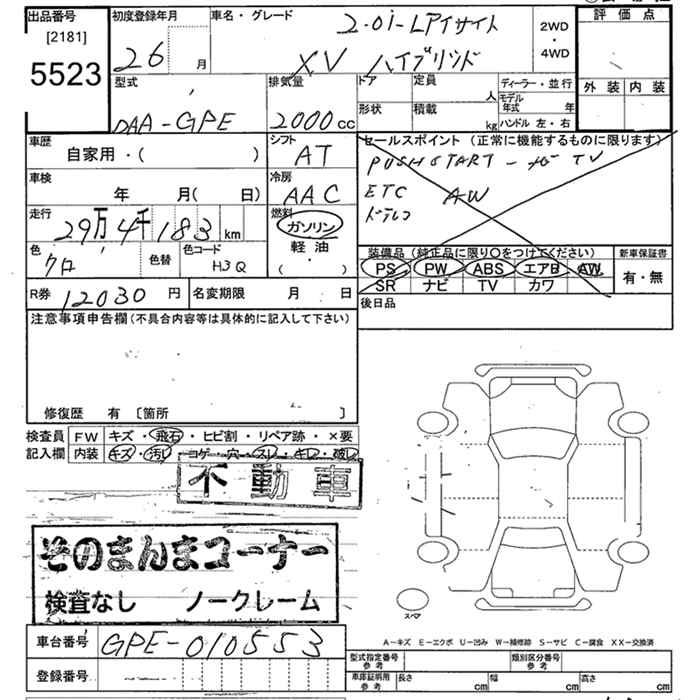 出品番号
[2181]
5523
初度登録年月
26 月
車名・グレード
2.0i-Lアイサイト
XV ハイブリッド
2WD
・
4WD
評価点
外装 内装
型式
DAA-GPE
排気量
2000 cc
ドア
形状
定員 人
積載 kg
ディーラー・並行
モデル年式 年
ハンドル 左・右
車歴
自家用・( )
シフト
AT
車検
年 月( 日)
冷房
AAC
走行
29万4千183 km
燃料
ガソリン
軽油
・( )
色
クロ
色替
色コード
H3Q
R券 12030 円
名変期限 月 日
セールスポイント (正常に機能するものに限ります)
PUSH START ーナビ TV
ETC AW
ドラレコ
装備品 (純正品に限り○をつけてください)
PS PW ABS エアB AW
SR ナビ TV カワ
新車保証書
有・無
後日品
注意事項申告欄(不具合内容等は具体的に記入して下さい)
修復歴 有 〔箇所 〕
検査員記入欄
FW キズ・飛石・ヒビ割・リペア跡・×要
内装 キズ・汚レ・コゲ・穴・スレ・キレ・破レ
不動車
そのまんまコーナー
検査なし ノークレーム
スペア
車台番号 GPE-010553
登録番号
A-キズ E-エクボ U-凹み W-補修跡 S-サビ C-腐食 XX-交換済
型式指定番号 参考
類別区分番号 参考
車庫証明用 参考 長さ cm 幅 cm 高さ cm